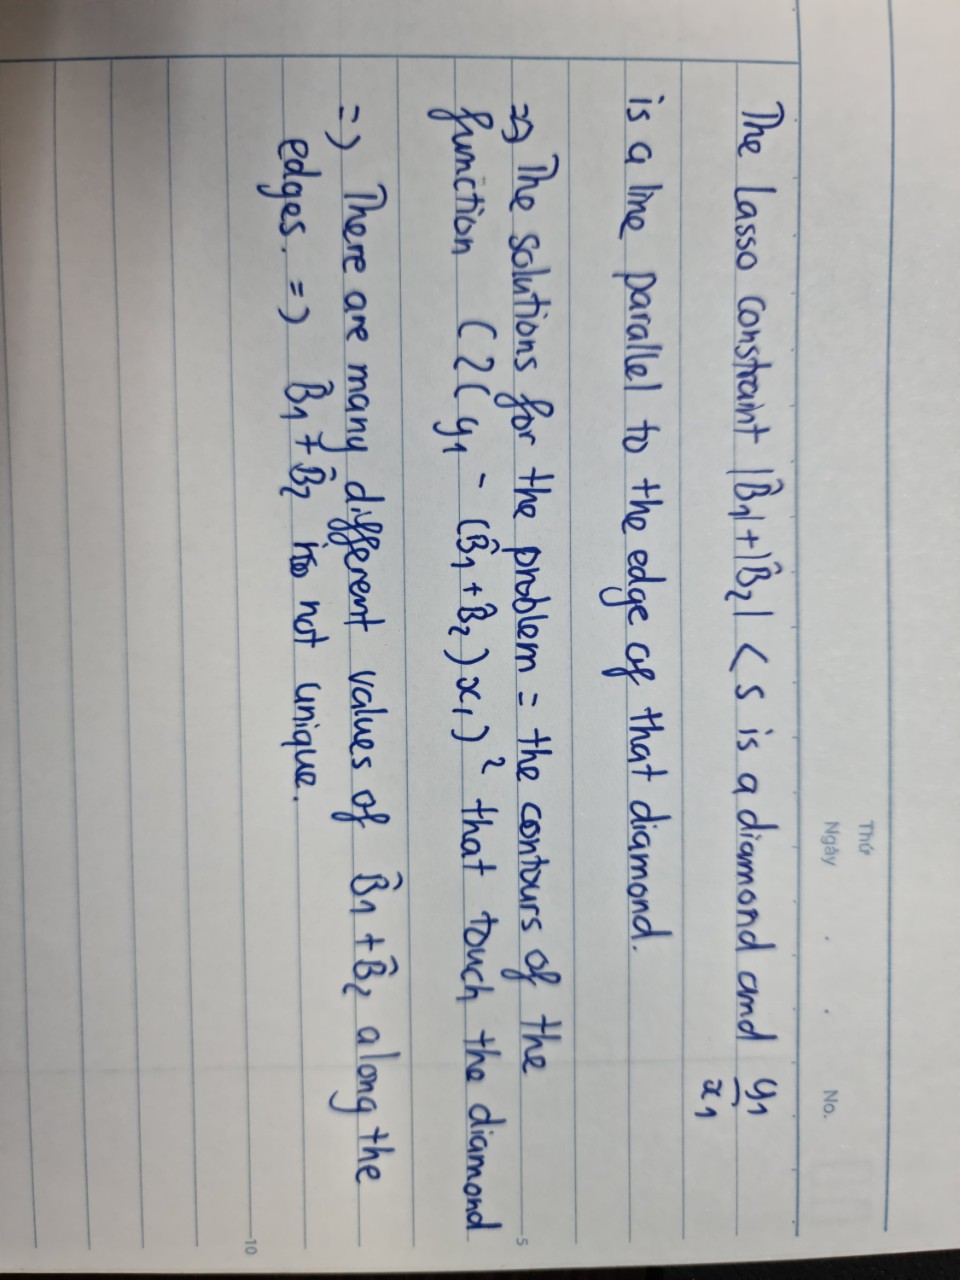 Thứ
Ngày . . No.
The Lasso constraint |B̂₁|+|B̂₂| < s is a diamond and y₁/x₁
is a line parallel to the edge of that diamond.
=> The solutions for the problem = the contours of the
5
function (2(y₁ - (B̂₁ + B̂₂)x₁)² that touch the diamond
=> There are many different values of B̂₁ + B̂₂ along the
edges. => B̂₁ + B̂₂ is not unique.
10